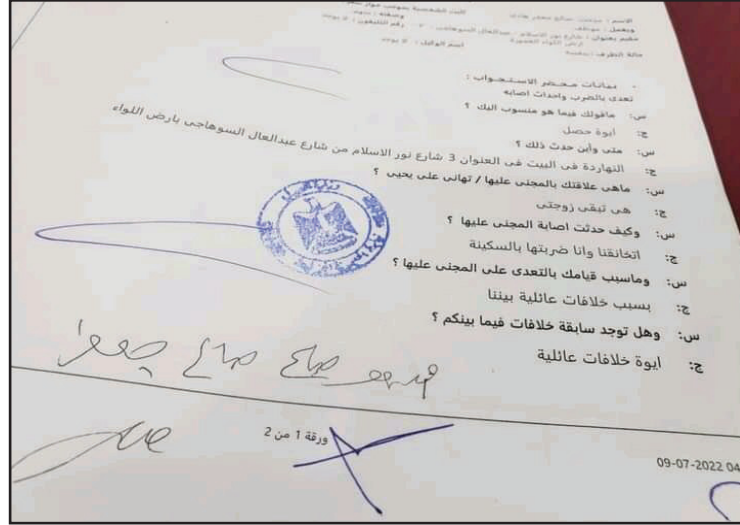 الاسم :
ويعمل : موظف
حالة الطرف :
اسم الوكيل : لا يوجد
رقم التليفون : لا يوجد
بيانات محضر الاستجواب :
تعدى بالضرب واحداث اصابه
س: ماقولك فيما هو منسوب اليك ؟
ج: ايوة حصل
س: متى وأين حدث ذلك ؟
ج: النهاردة فى البيت فى العنوان 3 شارع نور الاسلام من شارع عبدالعال السوهاجى بارض اللواء
س: ماهى علاقتك بالمجنى عليها / تهانى على يحيى ؟
ج: هى تبقى زوجتى
س: وكيف حدثت اصابة المجنى عليها ؟
ج: اتخانقنا وانا ضربتها بالسكينة
س: وماسبب قيامك بالتعدى على المجنى عليها ؟
ج: بسبب خلافات عائلية بيننا
س: وهل توجد سابقة خلافات فيما بينكم ؟
ج: ايوة خلافات عائلية
ورقة 1 من 2
09-07-2022 04